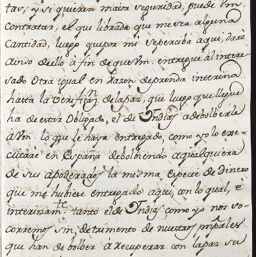 tas; y si quieren maior seguridad, puede Vm.
Contratar, el que librada que me sea alguna
Cantidad, luego que por mi se perciba aqui, dare
avio de ello à fin de que Vm. entregue al intere-
sado otra igual en Razon de prenda interina
hasta la Verificn. de la paz, que luego que llegue
ha de estar Obligado, el de Indias a debolberle
à Vm. lo que le haia entregado, como yo lo exe-
cutare en España debolbiendo aqualquiera
de sus apoderados la misma especie de dinero
que me hubiere entregado aqui, con lo qual, è
interinamte. tanto el de Indias como yo nos so-
corremos sin detrimento de nuestros prāles
que han de bolber à Recuperar con la paz su